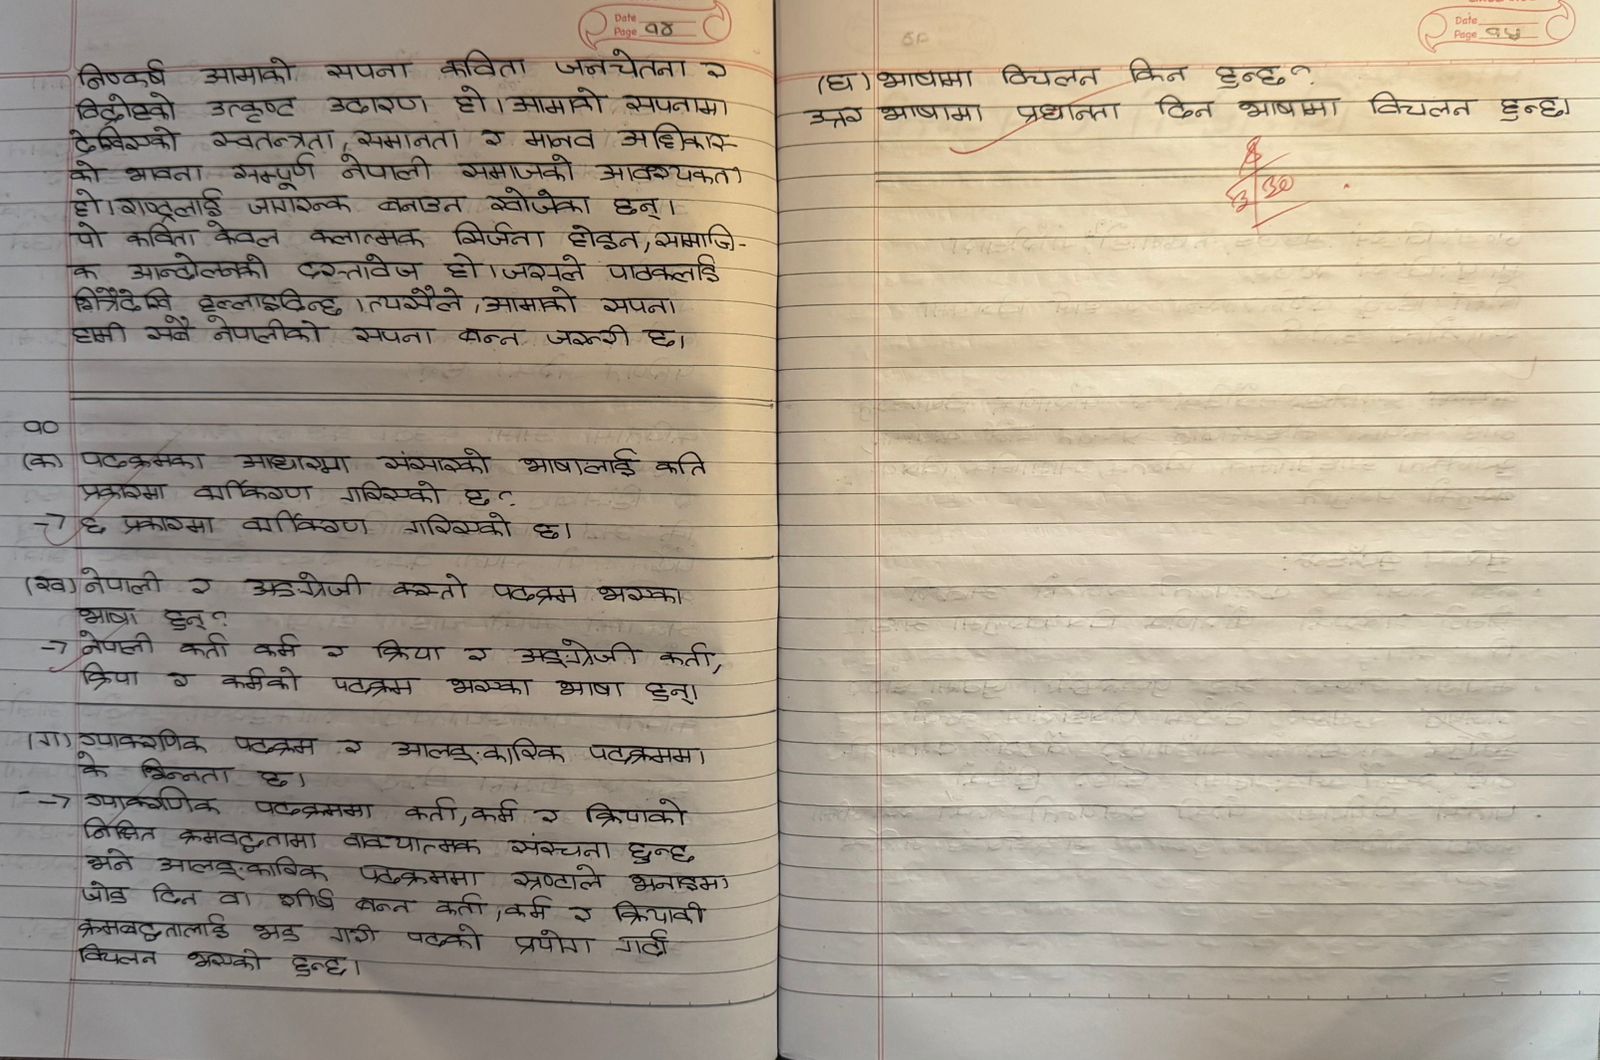 Date
Page १४
निष्कर्ष आमाको सपना कविता जनचेतना र
विद्रोहको उत्कृष्ट उदारण हो। आमाको सपनामा
देखिएको स्वतन्त्रता, समानता र मानव अधिकार-
को भावना सम्पूर्ण नेपाली समाजको आवश्यकता
हो। राष्ट्रलाई जागरुक बनाउन खोजेका छन्।
यो कविता केवल कलात्मक सिर्जना होइन, सामाजि-
क आन्दोलनको दस्तावेज हो। जसले पाठकलाई
भित्रैदेखि हल्लाइदिन्छ। त्यसैले, आमाको सपना
हामी सबै नेपालीको सपना बन्न जरूरी छ।
१०
(क) पदक्रमका आधारमा संसारको भाषालाई कति
प्रकारमा वर्गिकरण गरिएको छ?
→ ६ प्रकारमा वर्गिकरण गरिएको छ।
(ख) नेपाली र अङ्ग्रेजी कस्तो पदक्रम भएका
भाषा हुन्?
→ नेपाली कर्ता कर्म र क्रिया र अङ्ग्रेजी कर्ता,
क्रिया र कर्मको पदक्रम भएका भाषा हुन्।
(ग) व्याकरणिक पदक्रम र आलङ्कारिक पदक्रममा
के भिन्नता छ।
→ व्याकरणिक पदक्रममा कर्ता, कर्म र क्रियाको
निश्चित क्रमबद्धतामा वाक्यात्मक संरचना हुन्छ
भने आलङ्कारिक पदक्रममा स्रष्टाले भनाइमा
जोड दिन वा शीर्ष बन्न कर्ता, कर्म र क्रियाको
क्रमबद्धतालाई भङ गरी पदको प्रयोग गर्दा
विचलन भएको हुन्छ।
Date
Page १५
(घ) भाषामा विचलन किन हुन्छ?
उत्तर भाषामा प्रधानता दिन भाषामा विचलन हुन्छ।